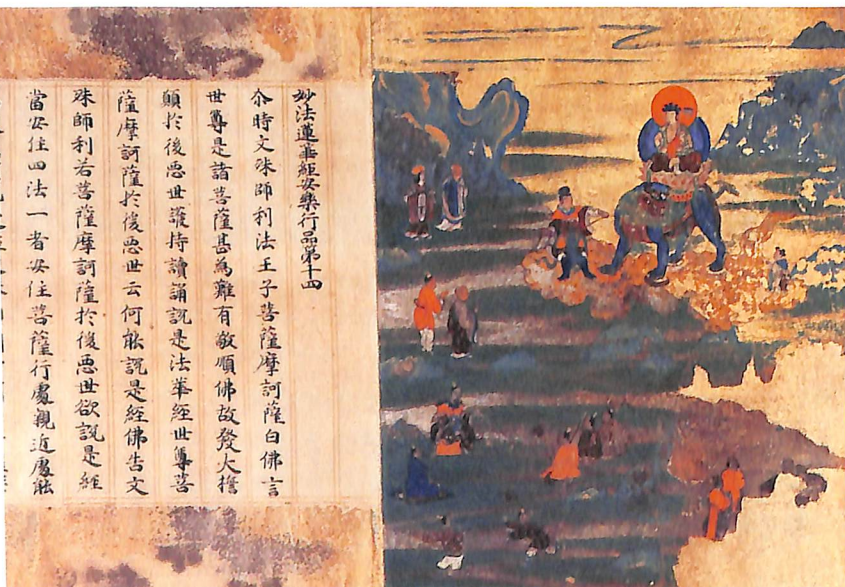 妙法蓮華經安樂行品第十四
尒時文殊師利法王子菩薩摩訶薩白佛言
世尊是諸菩薩甚為難有敬順佛故發大誓
願於後悪世護持讀誦說是法華經世尊菩
薩摩訶薩於後悪世云何能說是經佛告文
殊師利若菩薩摩訶薩於後悪世欲說是經
當安住四法一者安住菩薩行處親近處能